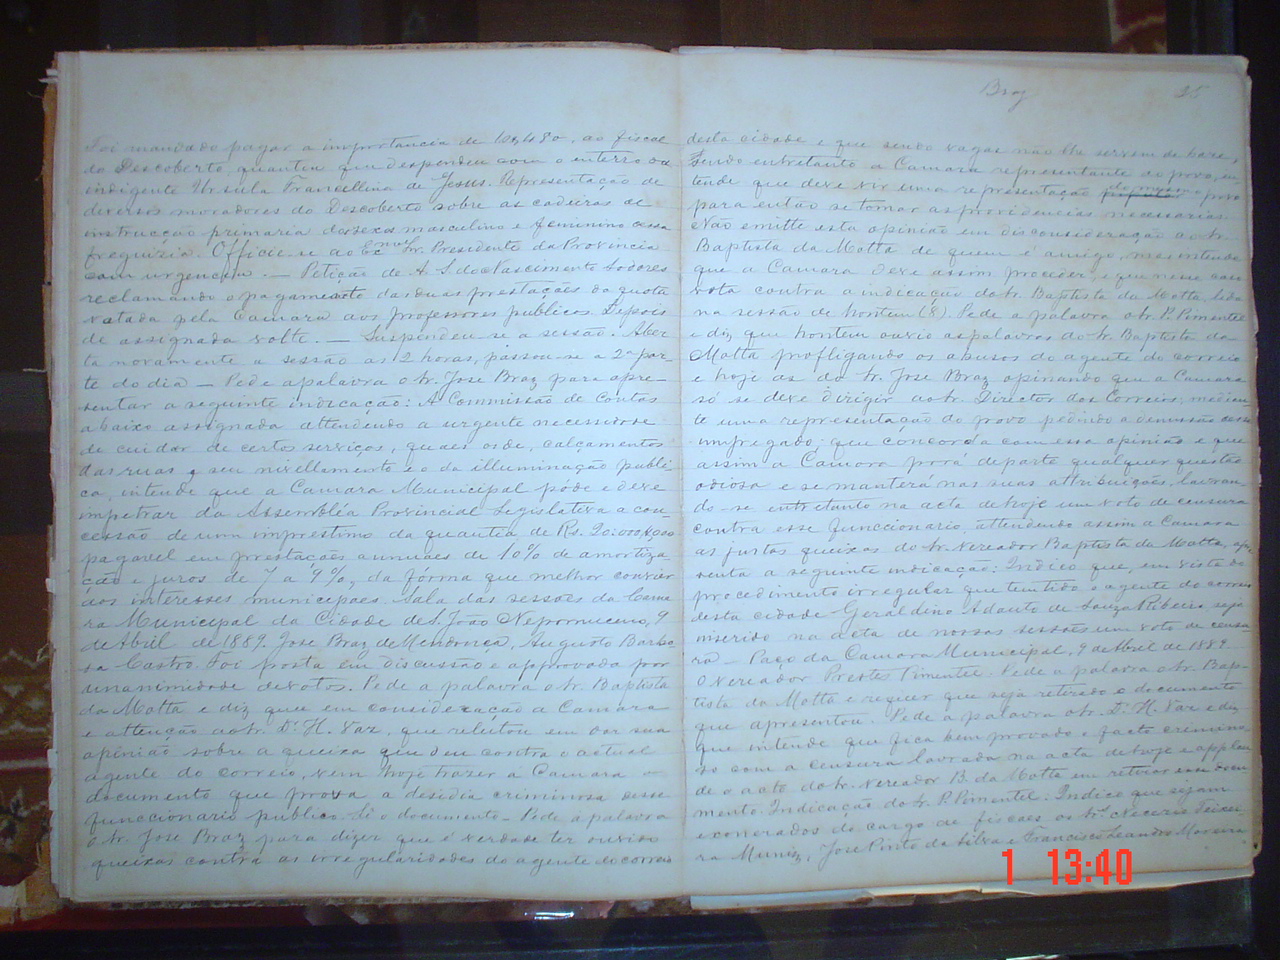 Foi mandado pagar a importancia de 10$480, ao fiscal
do Descoberto, quantia que despendeu com o enterro da
indigente Ursula Francellina de Jesus. Representação de
diversos moradores do Descoberto sobre as cadeiras de
instrucção primaria do sexo masculino e feminino dessa
freguezia. Officie-se ao Exmo Sr. Presidente da Provincia
com urgencia. — Petição de A. S. do Nascimento
reclamando o pagamento das duas prestações da quota
votada pela Camara aos professores publicos. Depois
de assignada volte. — Suspendeu-se a sessão. Aber
ta novamente a sessão as 2 horas, passou-se a 2ª par
te do dia — Pede a palavra o Sr. José Braz para apre-
sentar a seguinte indicação: A Commissão de Contas
abaixo assignada attendendo a urgente necessidade
de cuidar de certos serviços, quaes os de, calçamentos
das ruas e seu nivellamento e o da illuminação publi
ca, intende que a Camara Municipal póde e deve
impetrar da Assembléa Provincial Legislativa a con-
cessão de um imprestimo da quantia de Rs. 20:000$000
pagavel em prestações annuaes de 10% de amortiza
ção e juros de 7 a 9%, da fórma que melhor convier
aos interesses municipaes. Sala das sessões da Cama
ra Municipal da Cidade de S. João Nepomuceno, 9
de Abril de 1889. José Braz de Mendonça, Augusto Barbo
sa Castro. Foi posta em discussão e approvada por
unanimidade de votos. Pede a palavra o Sr. Baptista
da Motta e diz que em consideração a Camara
e attenção ao Sr. Dr. H. Vaz, que relutou em dar sua
opinião sobre a queixa que deu contra o actual
agente do correio, vem hoje trazer a Camara o
documento que prova a desidia criminosa desse
funccionario publico. Lê o documento — Pede a palavra
o Sr. José Braz para dizer que é verdade ter ouvido
queixas contra as irregularidades do agente do correio
Braz 25
desta cidade e que sendo vagas não lhe servem de base,
sendo entretanto a Camara representante do povo, en
tende que deve vir uma representação do mesmo povo
para então se tomar as providencias necessarias.
Não emitte esta opinião em desconsideração ao Sr.
Baptista da Motta de quem é amigo, mas intende
que a Camara deve assim proceder, e que nesse caso
vota contra a indicação do Sr. Baptista da Motta, lida
na sessão de hontem (8). Pede a palavra o Sr. P. Pimentel
e diz que hontem ouvio as palavras do Sr. Baptista da
Motta profligando os abusos do agente do correio
e hoje as do Sr. José Braz opinando que a Camara
só se deve dirigir ao Sr. Director dos Correios, median
te uma representação do povo pedindo a demissão desse
impregado; que concorda com essa opinião e que
assim a Camara porá de parte qualquer questão
odiosa e se manterá nas suas attribuições, lavran
do-se entretanto na acta de hoje um voto de censura
contra esse funccionario, attendendo assim a Camara
as justas queixas do Sr. Vereador Baptista da Motta, apre
senta a seguinte indicação: Indico que, em vista do
procedimento irregular que tem tido o agente do correio
desta cidade Geraldino Adauto de Souza Ribeiro, seja
inserido na acta de nossas sessões um voto de censu
ra. — Paço da Camara Municipal, 9 de Abril de 1889.
O Vereador Prestes Pimentel. Pede a palavra o Sr. Bap-
tista da Motta e requer que seja retirado o documento
que apresentou. Pede a palavra o Sr. Dr. H. Vaz e diz
que intende que fica bem provado o facto crimino
so com a censura lavrada na acta de hoje e applau
de o acto do Sr. Vereador B. da Motta em retirar esse docu
mento. Indicação do Sr. P. Pimentel: Indico que sejam
exonerados do cargo de fiscaes os Srs. Teixei
ra Muniz, José Pinto da Silva e Francisco Leandro Moreira
1 13:40